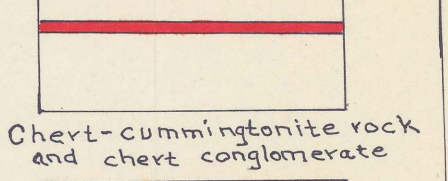 Chert-cummingtonite rock
and chert conglomerate